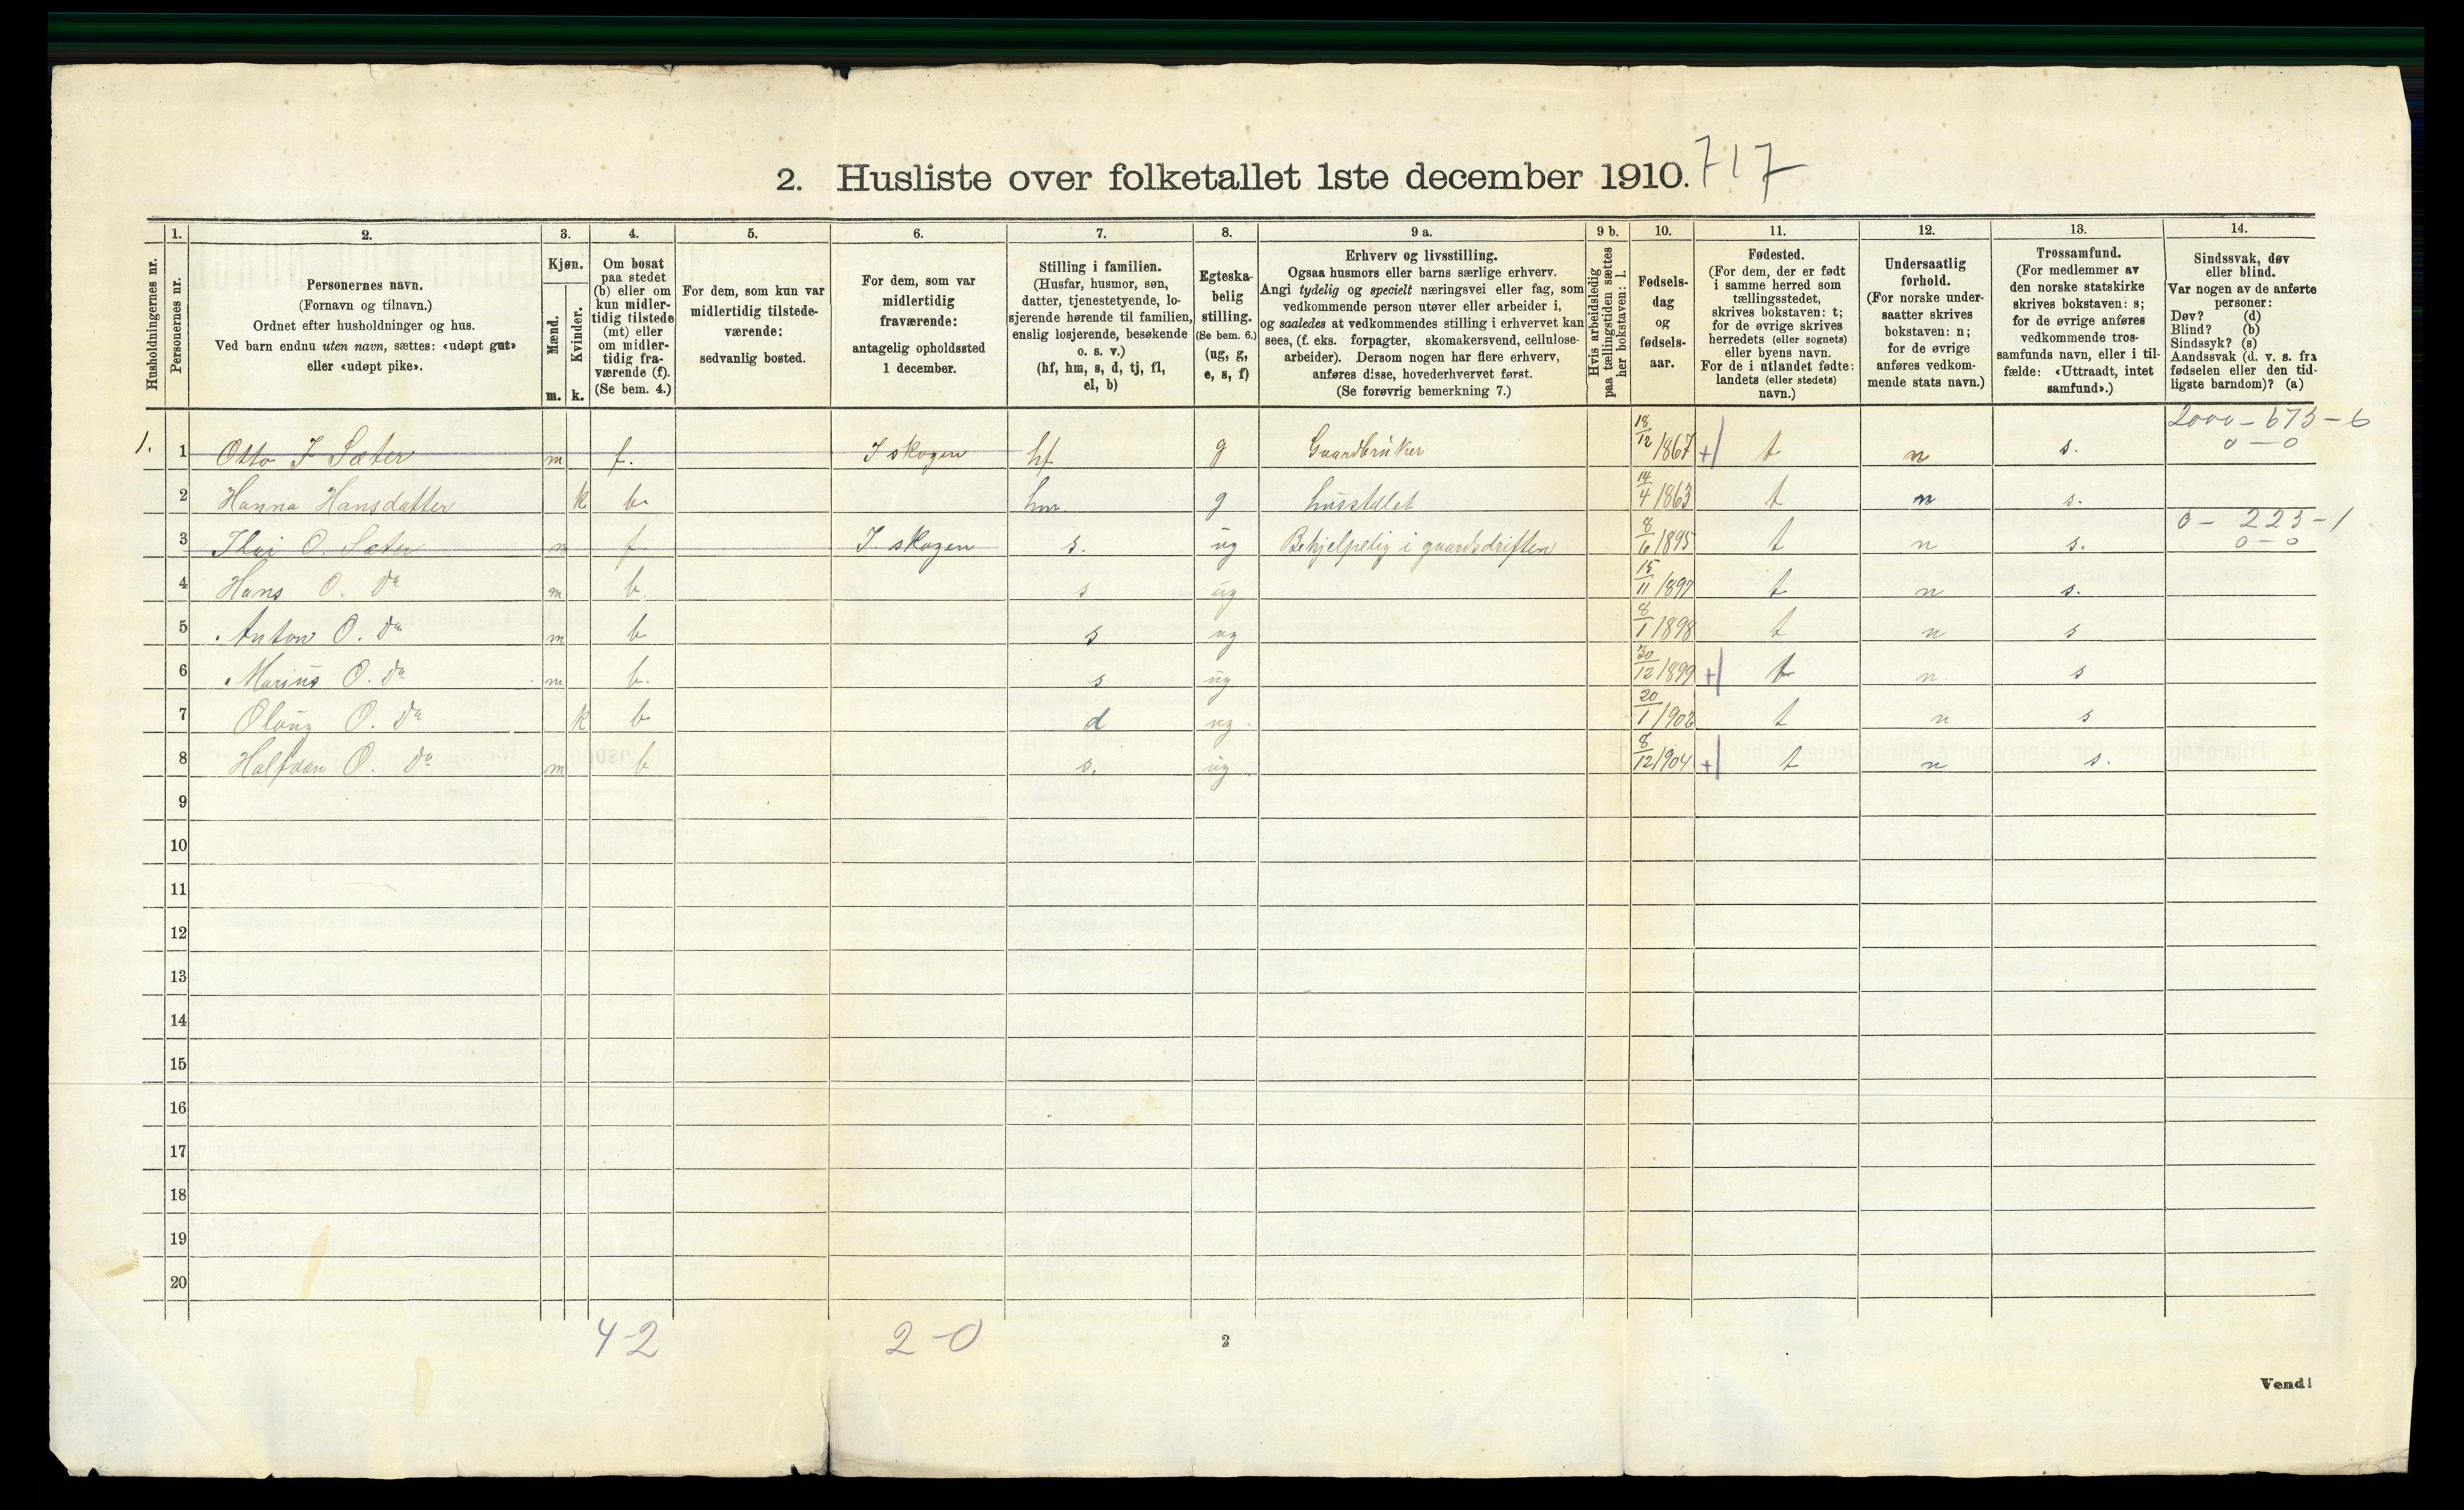 2. Husliste over folketallet 1ste december 1910. 717
1. 2. 3. 4. 5. 6. 7. 8. 9 a. 9 b. 10. 11. 12. 13. 14.
Husholdningernes nr.
Personernes nr.
Personernes navn.
(Fornavn og tilnavn.)
Ordnet efter husholdninger og hus.
Ved barn endnu uten navn, sættes: «udøpt gut»
eller «udøpt pike».
Kjøn.
Mænd.
Kvinder.
m. k.
Om bosat
paa stedet
(b) eller om
kun midler-
tidig tilstede
(mt) eller
om midler-
tidig fra-
værende (f).
(Se bem. 4.)
For dem, som kun var
midlertidig tilstede-
værende:
sedvanlig bosted.
For dem, som var
midlertidig
fraværende:
antagelig opholdssted
1 december.
Stilling i familien.
(Husfar, husmor, søn,
datter, tjenestetyende, lo-
sjerende hørende til familien,
enslig losjerende, besøkende
o. s. v.)
(hf, hm, s, d, tj, fl,
el, b)
Egteska-
belig
stilling.
(Se bem. 6.)
(ug, g,
e, s, f)
Erhverv og livsstilling.
Ogsaa husmors eller barns særlige erhverv.
Angi tydelig og specielt næringsvei eller fag, som
vedkommende person utøver eller arbeider i,
og saaledes at vedkommendes stilling i erhvervet kan
sees, (f. eks. forpagter, skomakersvend, cellulose-
arbeider). Dersom nogen har flere erhverv,
anføres disse, hovederhvervet først.
(Se forøvrig bemerkning 7.)
Hvis arbeidsledig
paa tællingstiden sættes
her bokstaven: l.
Fødsels-
dag
og
fødsels-
aar.
Fødested.
(For dem, der er født
i samme herred som
tællingsstedet,
skrives bokstaven: t;
for de øvrige skrives
herredets (eller sognets)
eller byens navn.
For de i utlandet fødte:
landets (eller stedets)
navn.)
Undersaatlig
forhold.
(For norske under-
saatter skrives
bokstaven: n;
for de øvrige
anføres vedkom-
mende stats navn.)
Trossamfund.
(For medlemmer av
den norske statskirke
skrives bokstaven: s;
for de øvrige anføres
vedkommende tros-
samfunds navn, eller i til-
fælde: «Uttraadt, intet
samfund».)
Sindssvak, døv
eller blind.
Var nogen av de anførte
personer:
Døv? (d)
Blind? (b)
Sindssyk? (s)
Aandssvak (d. v. s. fra
fødselen eller den tid-
ligste barndom)? (a)
2000 - 673 - 6
1. 1 Otto J Sæter m f. I skogen hf g Gaardbruker 18/12 1867 +| t n s. 0 - 0
2 Hanna Hansdatter k b hm g husstellet 14/4 1863 t n s.
0 - 223 - 1
3 O. Sæter m f I skogen s. ug Behjelpelig i gaardsdriften 8/6 1895 t n s. 0 - 0
4 Hans O. do m b. s ug 15/11 1897 t n s.
5 Anton O. do m b s ug 8/1 1898 t n s
6 Marius O. do m b. s ug 30/12 1899 +| t n. s
7 Olaug O. do k b d ug. 20/1 1902 t n s
8 Halfdan O. do m b s. ug. 8/12 1904 +| t n s.
9
10
11
12
13
14
15
16
17
18
19
20
4-2 2-0 2
Vend!